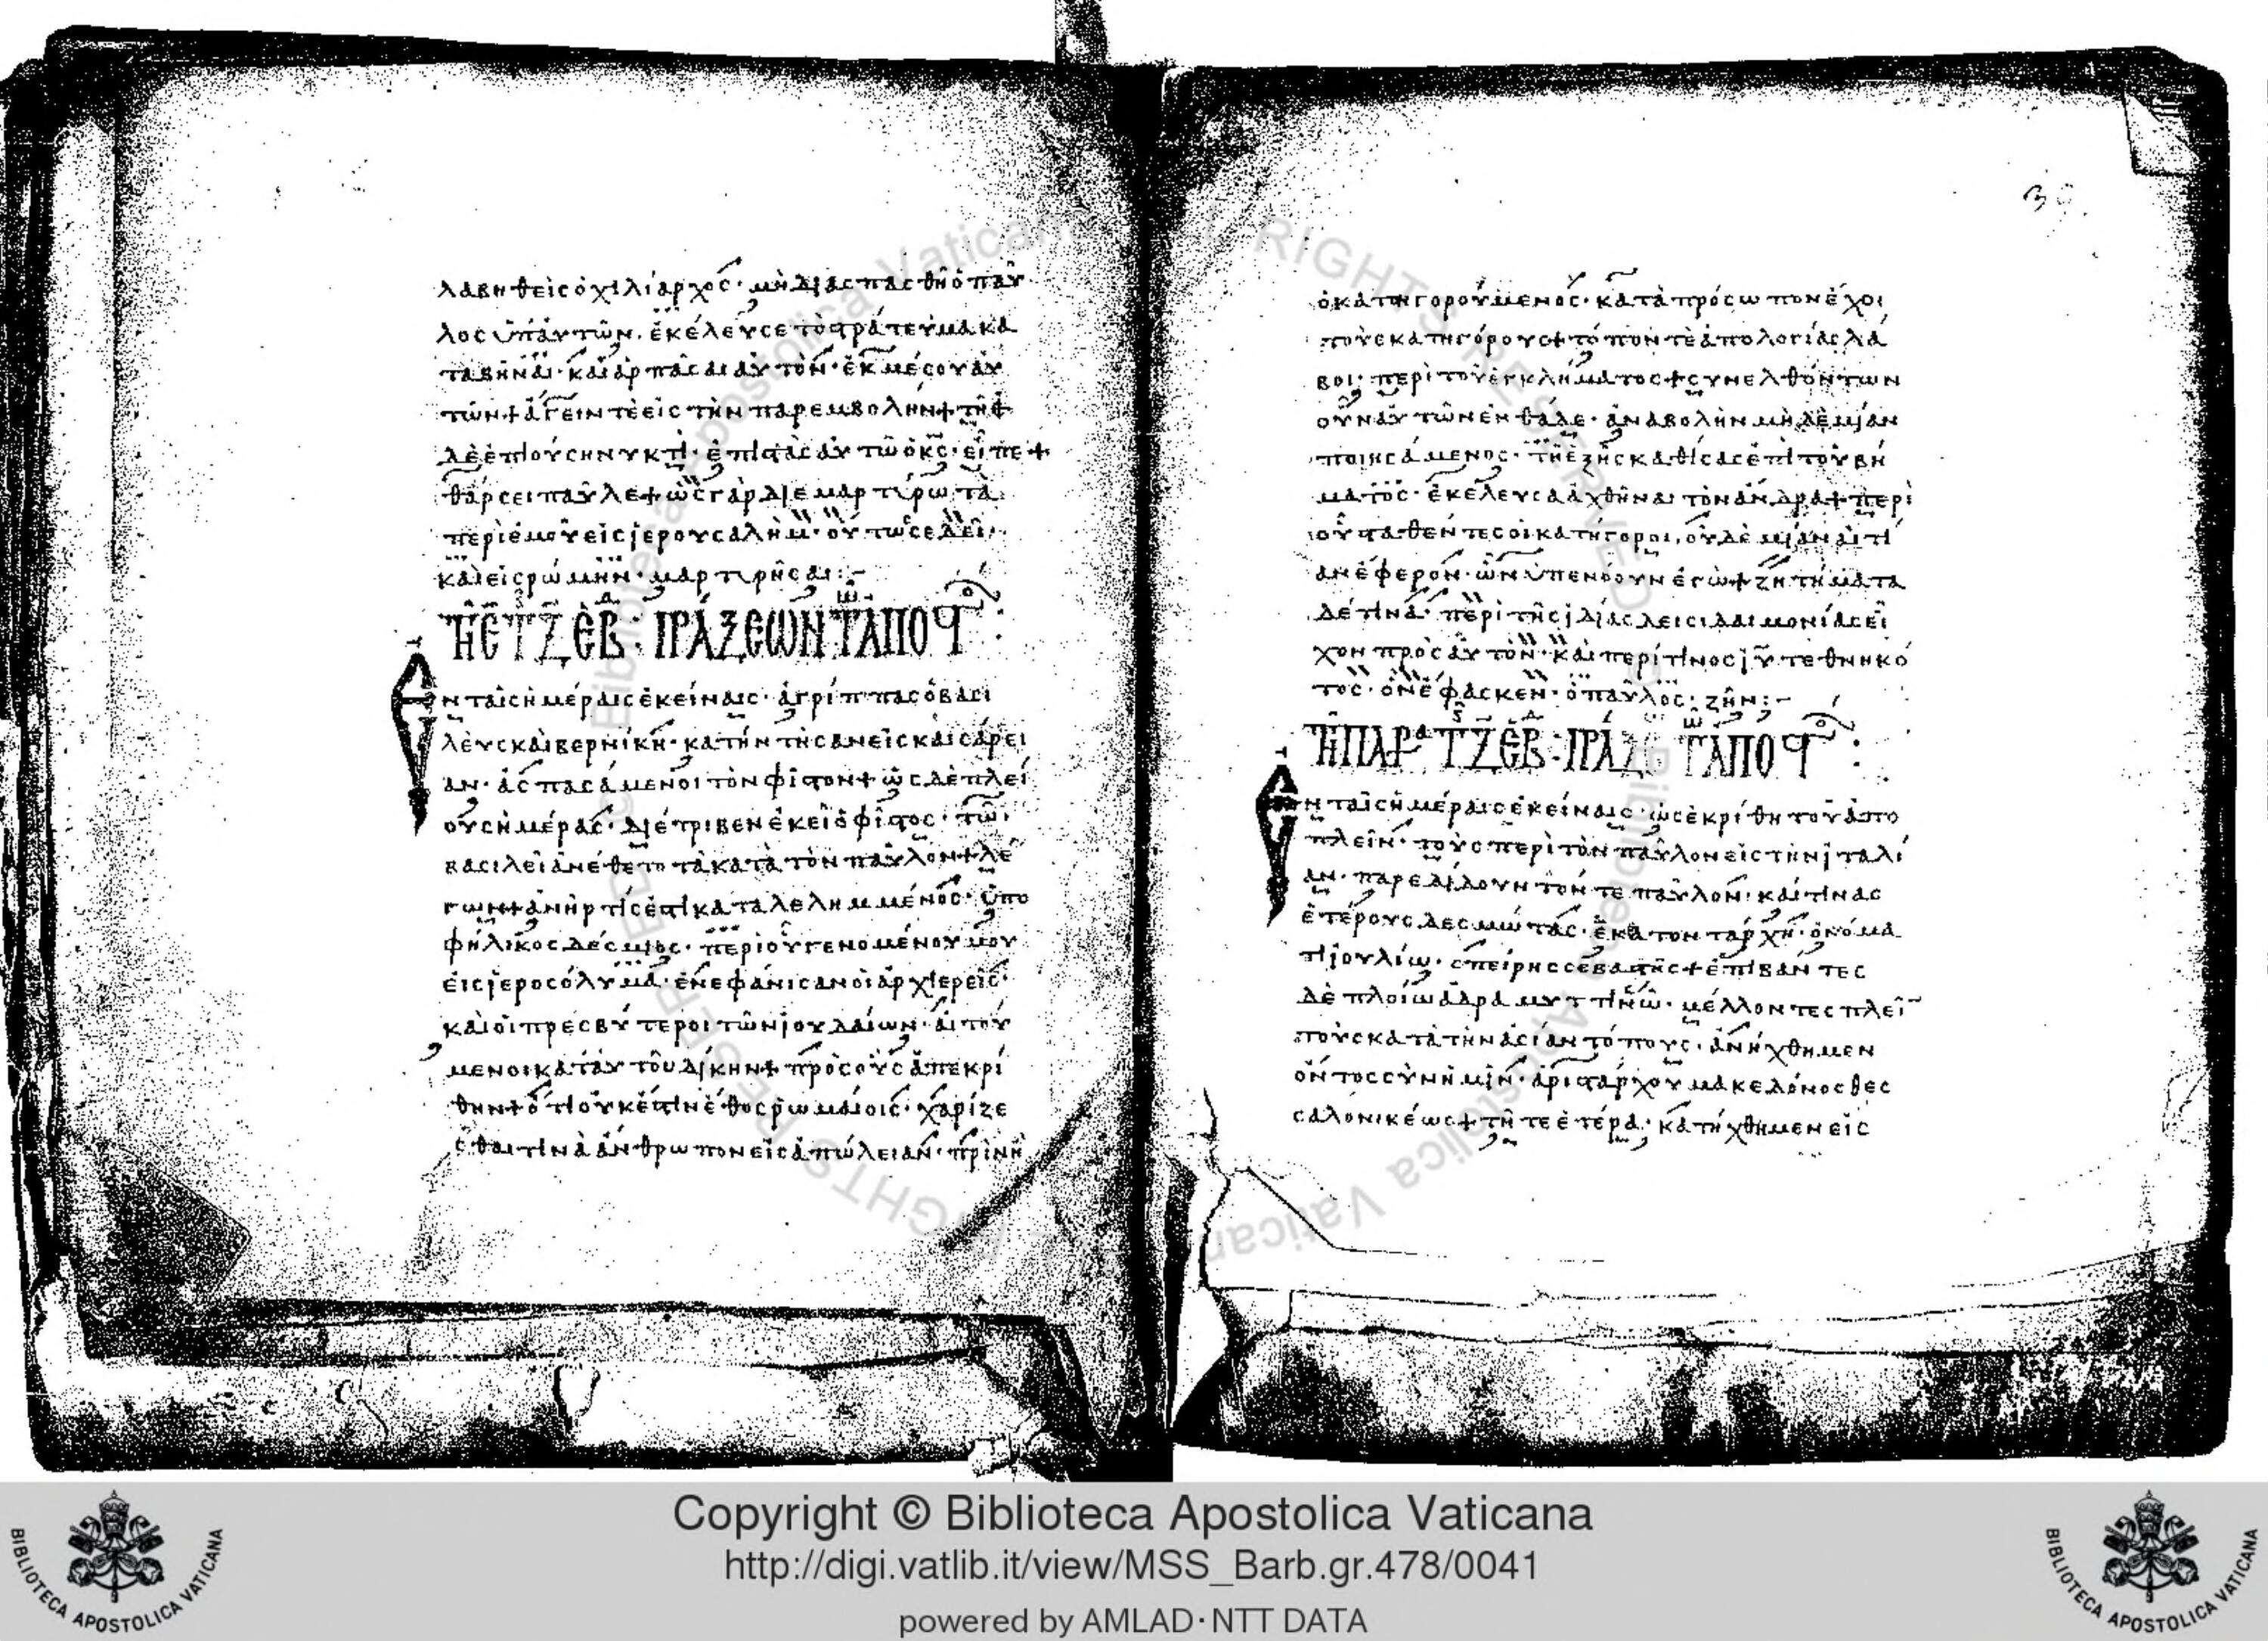 λαβηθεὶς ὁ χιλίαρχος· μὴ διασπασθῆ ὁ παῦ
λος ὑπ' αὐτῶν. ἐκέλευσε τὸ στράτευμα κα
ταβῆναι· καὶ ἁρπάσαι αὐτὸν· ἐκ μέσου αὐ
τῶν + ἄγειν τὲ εἰς τὴν παρεμβολήν + τῆ
δὲ ἐπιούση νυκτὶ· ἐπιστὰς αὐτῶ ὁ κς· εἶπε +
θάρσει παῦλε + ὡς γὰρ διεμαρτύρω τὰ
περὶ ἐμοῦ εἰς ἱερουσαλὴμ· οὕτω σε δεῖ
καὶ εἰς ρώμην· μαρτυρῆσαι:-
ΤΗ Ε ΤΗΣ Ζ ΕΒ: ΠΡΑΞΕΩΝ ΤΩΝ ΑΠΟΣΤ:
Ἐν ταῖς ἡμέραις ἐκείναις· ἀγρίππας ὁ βασι
λεὺς καὶ βερνίκη· κατήντησαν εἰς καισάρει
αν· ἀσπασάμενοι τὸν φῖστον + ὡς δὲ πλεί
ους ἡμέρας· διέτριβεν ἐκεῖ ὁ φῖστος· τῶ
βασιλεῖ ἀνέθετο τὰ κατὰ τὸν παῦλον + λέ
γων + ἀνήρ τίς ἐστὶ καταλελημμένος· ὑπὸ
φήλικος δέσμιος· περὶ οὗ γενομένου μου
εἰς ἱεροσόλυμα· ἐνεφάνισαν οἱ ἀρχιερεῖς·
καὶ οἱ πρεσβύτεροι τῶν ἰουδαίων· αἰτού
μενοι κατ' αὐτοῦ δίκην + πρὸς οὓς ἀπεκρί
θην + ὅτι οὐκ ἔστιν ἔθος ρωμαίοις· χαρίζε
σθαι τινὰ ἄνθρωπον εἰς ἀπώλειαν· πρὶν ἢ
ὁ κατηγορούμενος· κατὰ πρόσωπον ἔχοι
τοὺς κατηγόρους + τόπον τὲ ἀπολογίας λά
βοι· περὶ τοῦ ἐγκλήματος + συνελθόντων
οὖν αὐτῶν ἐνθάδε· ἀναβολὴν μηδὲ μίαν
ποιησάμενος· τῆ ἑξῆς καθίσας ἐπὶ τοῦ βή
ματος· ἐκέλευσα ἀχθῆναι τὸν ἄνδρα + περὶ
οὗ σταθέντες οἱ κατήγοροι, οὐδὲ μίαν αἰτί
αν ἔφερον· ὧν ὑπενόουν ἐγὼ + ζητήματα
δέ τινα· περὶ τῆς ἰδίας δεισιδαιμονίας εἶ
χον πρὸς αὐτὸν· καὶ περί τινος ἰῦ τεθνηκό
τος· ὃν ἔφασκεν· ὁ παῦλος· ζῆν:-
ΤΗ ΠΑΡΑ ΤΗΣ Ζ ΕΒ: ΠΡΑΞ ΤΩΝ ΑΠΟΣΤ:
Ἐν ταῖς ἡμέραις ἐκείναις· ὡς ἐκρίθη τοῦ ἀπο
πλεῖν· τοὺς περὶ τὸν παῦλον εἰς τὴν ἰταλί
αν· παρεδίδουν τόν τε παῦλον· καί τινας
ἑτέρους δεσμώτας· ἑκατοντάρχη· ὀνόμα
τι ἰουλίω· σπείρης σεβαστῆς + ἐπιβάντες
δὲ πλοίω ἀδραμυττινῶ· μέλλοντες πλεῖ
τοὺς κατὰ τὴν ἀσίαν τόπους· ἀνήχθημεν
ὄντος σὺν ἡμῖν· ἀριστάρχου μακεδόνος θεσ
σαλονικέως + τῆ τε ἑτέρα· κατήχθημεν εἰς
Copyright © Biblioteca Apostolica Vaticana
http://digi.vatlib.it/view/MSS_Barb.gr.478/0041
powered by AMLAD·NTT DATA
BIBLIOTECA APOSTOLICA VATICANA
BIBLIOTECA APOSTOLICA VATICANA